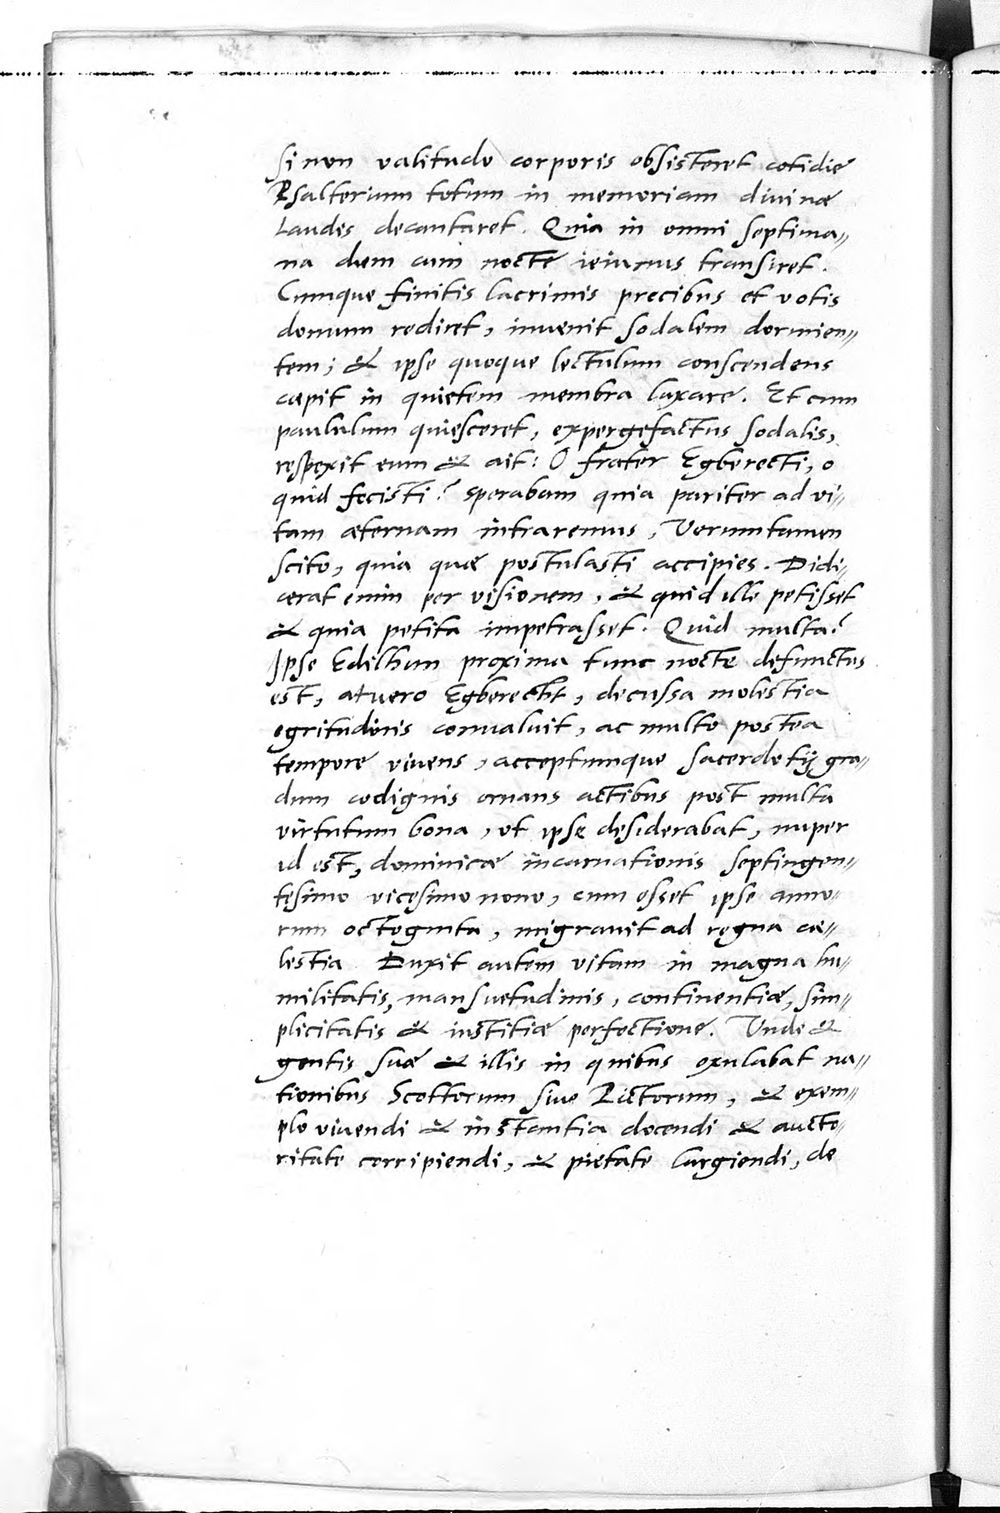 si non valitudo corporis obsisteret cotidie
Psalterium totum in memoriam divinæ
Laudis decantaret. Quia in omni septima„
na diem cum nocte ieiunus transiret.
Cumque finitis lacrimis precibus et votis
domum rediret, invenit sodalem dormien„
tem; & ipse quoque lectulum conscendens
cæpit in quietem membra laxare. Et cum
paululum quiesceret, expergefactus sodalis,
respexit eum & ait: O frater Egberecti, o
quid fecisti? sperabam quia pariter ad vi„
tam æternam intraremus, Veruntamen
scito, quia quæ postulasti accipies. Didi„
cerat enim per visionem, & quid ille petisset
& quia petita impetrasset. Quid multa?
Ipse Edilhun proxima tunc nocte defunctus
est, at vero Egberectht, decussa molestia
egritudinis convaluit, ac multo postea
tempore vivens, acceptumque sacerdotij gra„
dum codignis ornans actibus post multa
virtutum bona, ut ipse desiderabat, nuper
id est, dominicæ incarnationis septingen„
tesimo vicesimo nono, cum esset ipse anno„
rum octoginta, migravit ad regna cæ„
lestia. Duxit autem vitam in magna hu„
militatis, mansuetudinis, continentiæ, sim„
plicitatis & iustitiæ perfectione. Unde &
gentis suæ & illis in quibus exulabat na„
tionibus Scottorum sive Pictorum, & exem„
plo vivendi & instantia docendi & aucto„
ritate corripiendi, & pietate largiendi, de